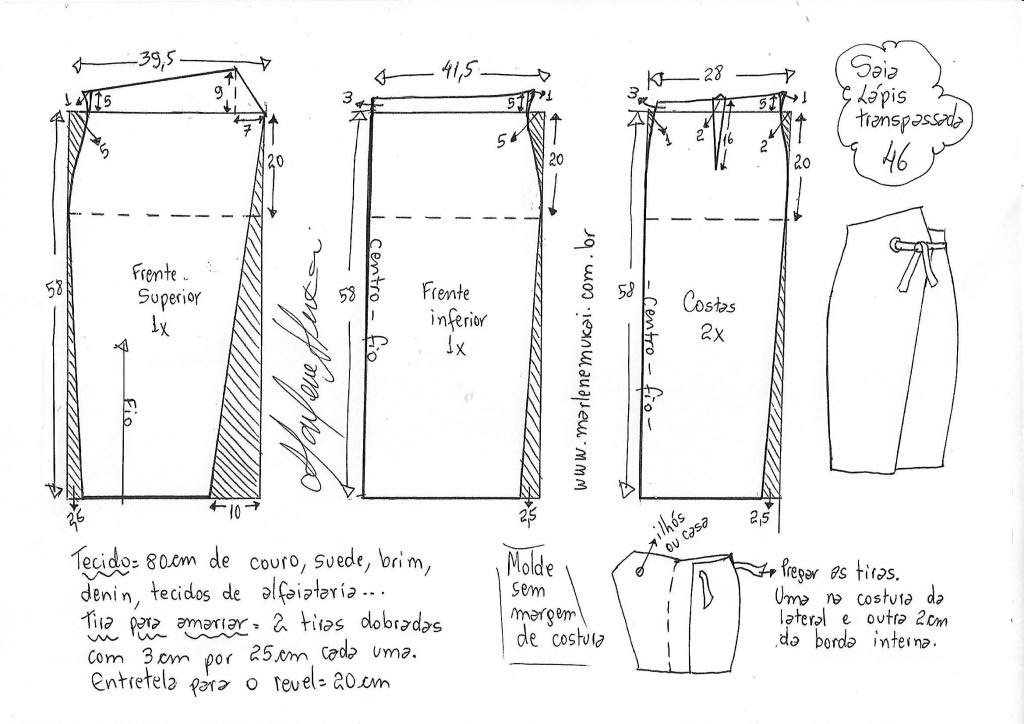 39,5
1
5
9
7
5
20
58
Frente
Superior
1x
Fio
2,5
10
41,5
3
5
1
5
20
58
Centro - fio
Frente
inferior
1x
2,5
www.marlenemukai.com.br
28
3
1
2
16
5
1
2
20
58
- Centro - fio -
Costas
2x
2,5
Saia
Lápis
transpassada
46
Tecido = 80cm de couro, suede, brim,
denin, tecidos de alfaiataria...
Tira para amarrar = 2 tiras dobradas
com 3cm por 25cm cada uma.
Entretela para o revel = 20cm
Molde
sem
margem
de costura
ilhós
ou casa
Pregar as tiras.
Uma na costura da
lateral e outra 2cm
da borda interna.